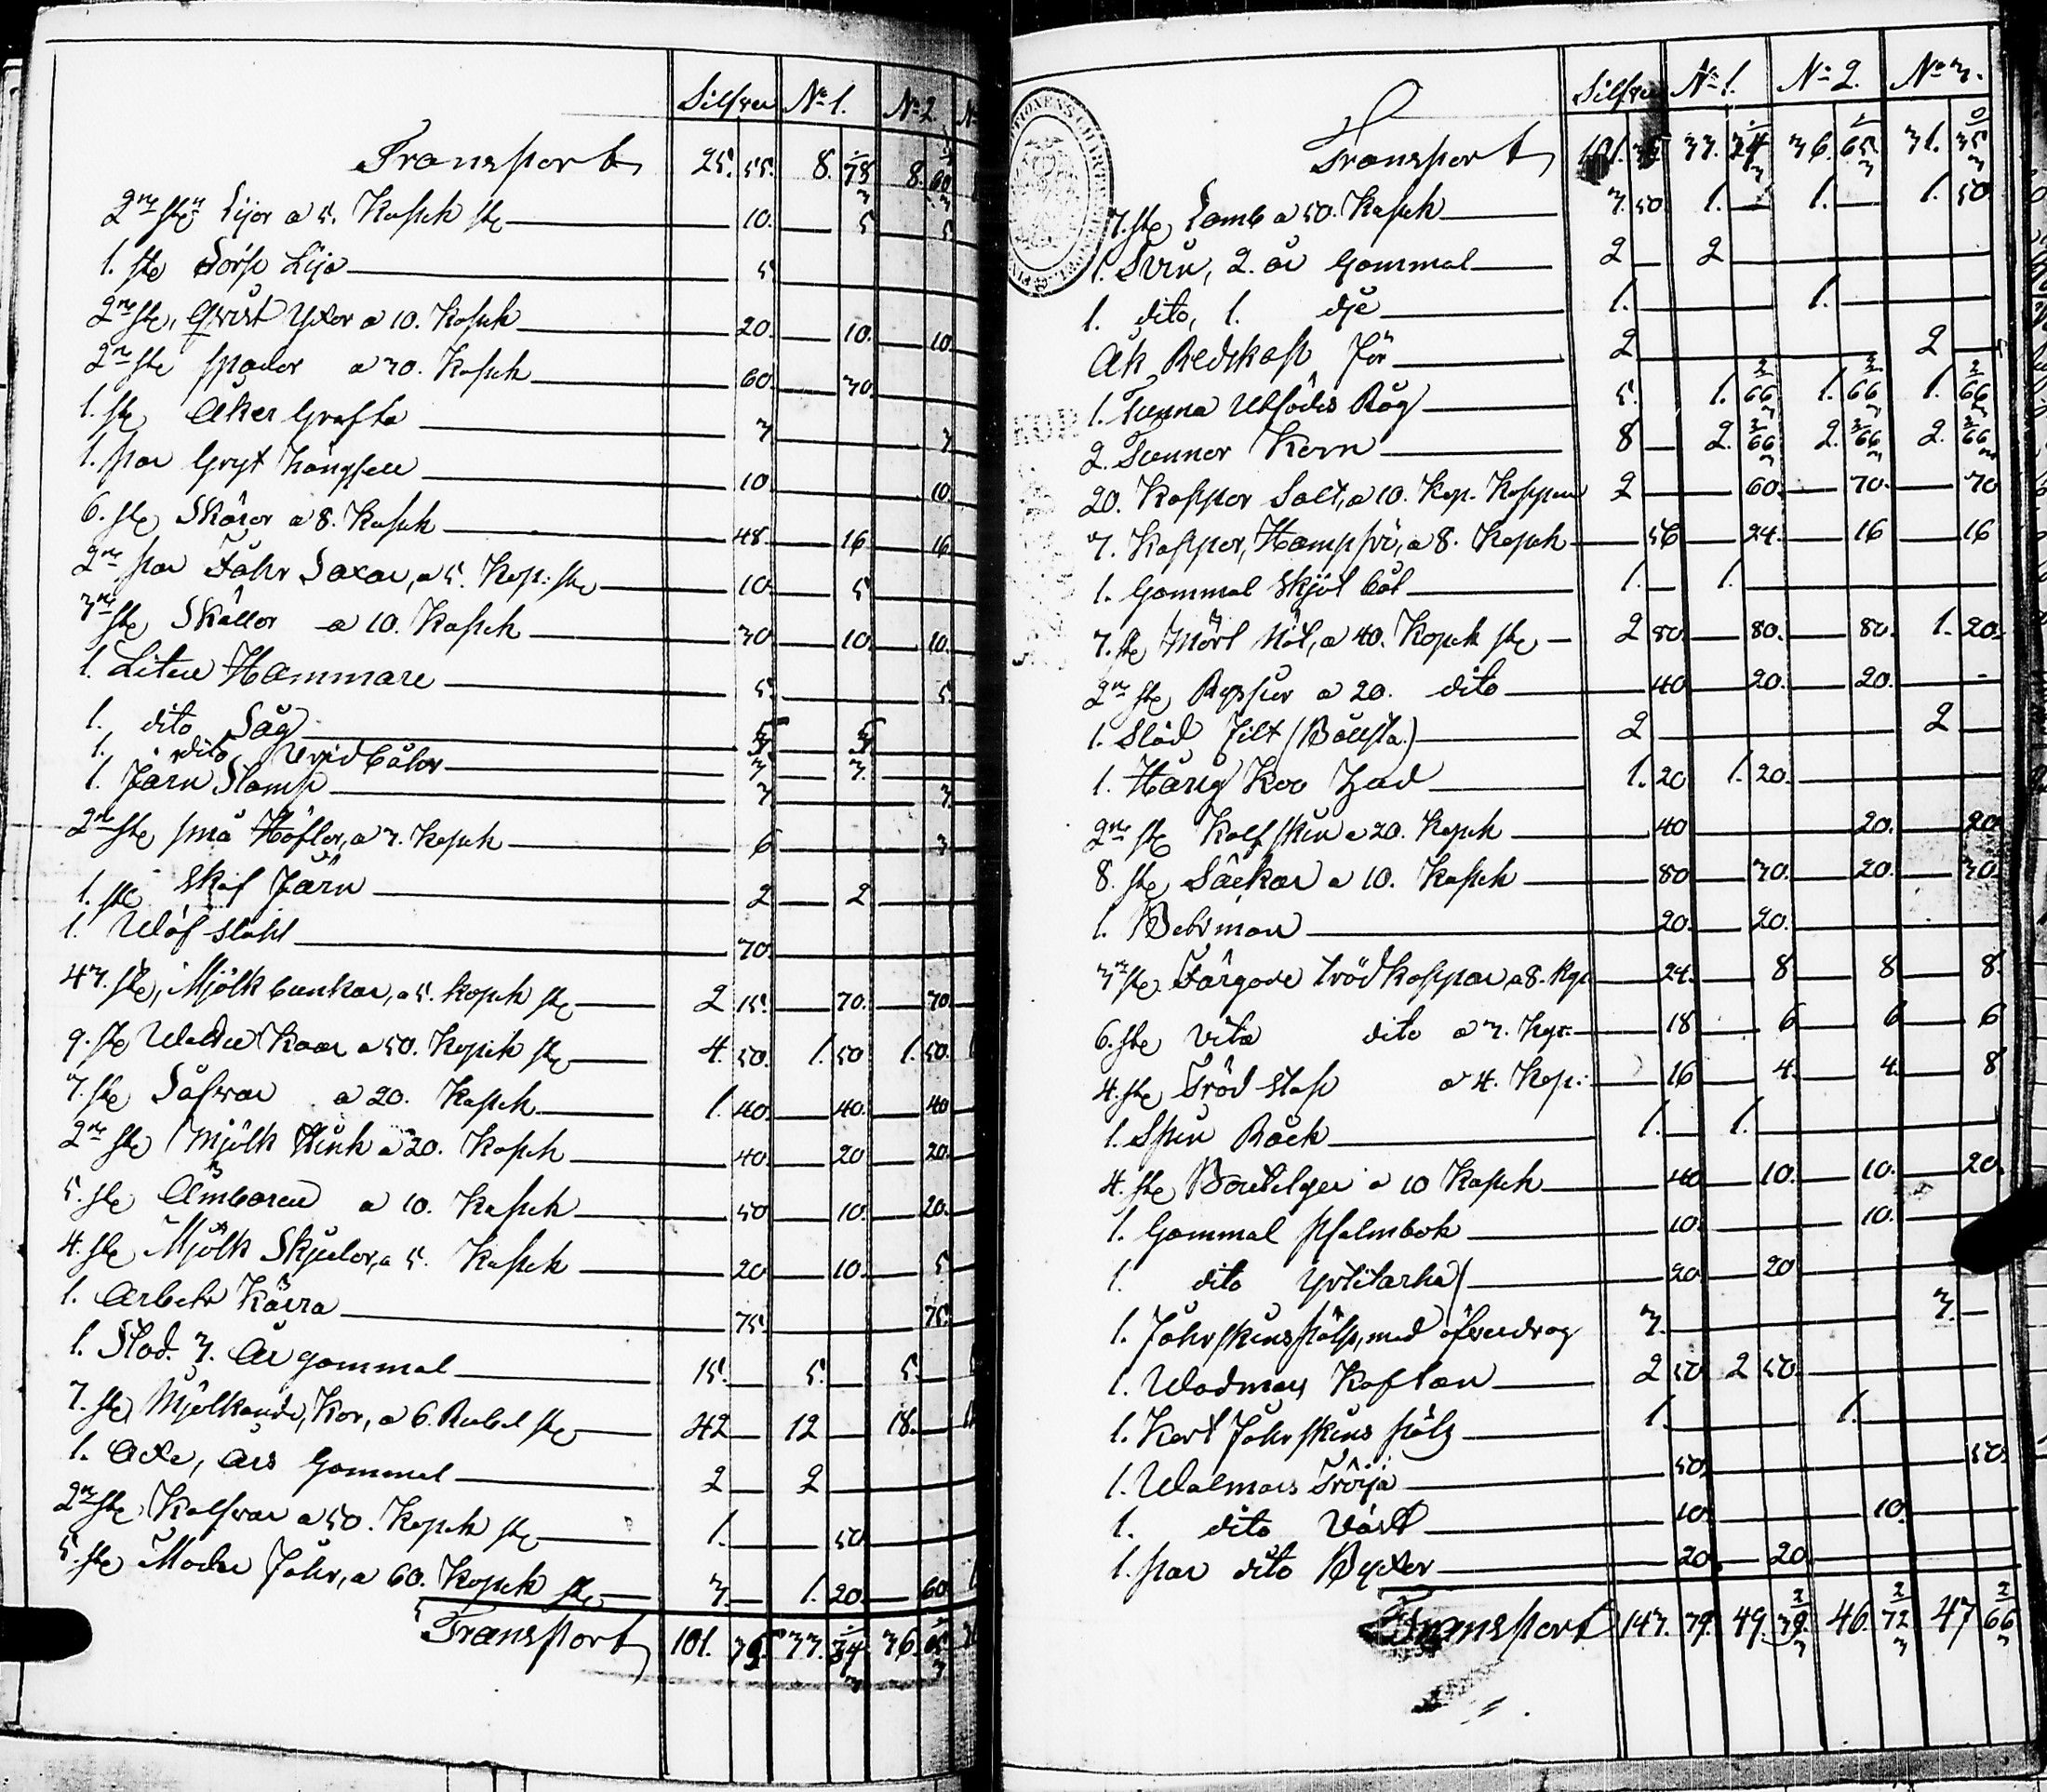 Silfver No 1. No 2. No
Transport 25. 55. 8. 78 1/3 8. 60
2ne ste Lijor a 5. Kopek ste 10. 5 5
1. ste Törf Lija 5
2ne ste, Qvist Yxor a 10. Kopek 20. 10. 10.
2ne ste spador a 30. Kopek 60. 30.
1. ste Åker Grafta 3 3
1. par Gryt hängslen 10. 10.
6. ste Skäror a 8. Kopek 48. 16 16
2ne par Fåhr Saxar, a 5. Kop: ste 10. 5
3ne ste Skällor a 10. Kopek 30 10. 10.
1. Liten Hammare 5. 5
1. dito Såg
1. dito Vridbålar 3 3.
1. Järn Stamp 3. 3
2ne ste små Höflar, a 3. Kopek 6 3
1. ste skaf Järn 2 2
1. Wäf stohl 70.
43. ste, Mjölk bunkar, a 5. kopek ste 2 15. 70. 70
9. ste Kaar a 50. Kopek ste 4. 50. 1. 50 1. 50.
7. ste Såfvar a 20. Kopek 1. 40. 40. 40
2ne ste Mjölk a 20. Kopek 40. 20 20.
5. ste Ämbaren a 10. Kopek 50 10. 20.
4. ste Mjölk Skjulor, a 5. Kopek 20 10. 5
1. Arbets Kärra 75. 75.
1. Stod. 3. År gammal 15. 5. 5.
7. ste Mjölkande, Kor, a 6. Rubel ste 42 12 18.
1. Oxe, Års Gammal 2 2
2ne ste Kalfvar a 50. Kopek ste 1. 50
5. ste Moder Fåhr, a 60. Kopek ste 3 1. 20. 60
Transport 101. 33. 36.
Silfver No 1. No 2. No 3.
Transport 101. 33. 36. 65 31. 35
7. ste Lamb a 50. Kopek 3. 50 1. 1. 1. 50.
1. Svin, 2. år Gammal 2 2
1. dito, 1. 1. 1.
Åk Redskap för 2 2
1. Tunna Utsådes Råg 5. 1. 66 2/3 1. 66 2/3 1. 66 2/3
2. Tunnor Korn 8 2. 66 2/3 2. 66 2/3 2. 66 2/3
20. Kappar Salt, a 10. Kop. Kappen 2 60. 70. 70
7. Kappar, Hampfrö, a 8. Kopek 56 24. 16 16
1. Gammal Skjut båt 1. 1.
7. ste Mört Nät, a 40. Kopek ste 2 80. 80. 80. 1. 20.
2ne ste Ryssjor a 20. dito 40 20. 20.
1. Släd 2 2
1. Hårig Koo hud 1. 20 1. 20.
2ne ste Kalfskin a 20. Kopek 40 20. 20
8. ste Säckar a 10. Kopek 80 30. 20. 30.
1. Betsman 20. 20.
3ne ste Färgade trödkoppar a 8. Kop 24. 8 8 8.
6. ste Vita dito a 3. Kop. 18 6 6 6
4. ste Tröd stop a 4. Kop: 16 4. 4. 8
1. Spin Råck 1. 1.
4. ste Boutelger a 10 Kopek 40 10. 10. 20.
1. Gammal Psalmbok 10. 10.
1. dito 20 20
1. Fåhrskinspäls, med öfverdrag 3. 3.
1. Wadmars Kaftan 2 50 2 50.
1. Kort Fåhrskins päls 1. 1.
1. Walmars Tröija 50. 50
1. dito Väst 10. 10.
1. par dito Byxor 20. 20
Transport 143. 79. 49. 39 2/3 46. 72 2/3 47 66 2/3